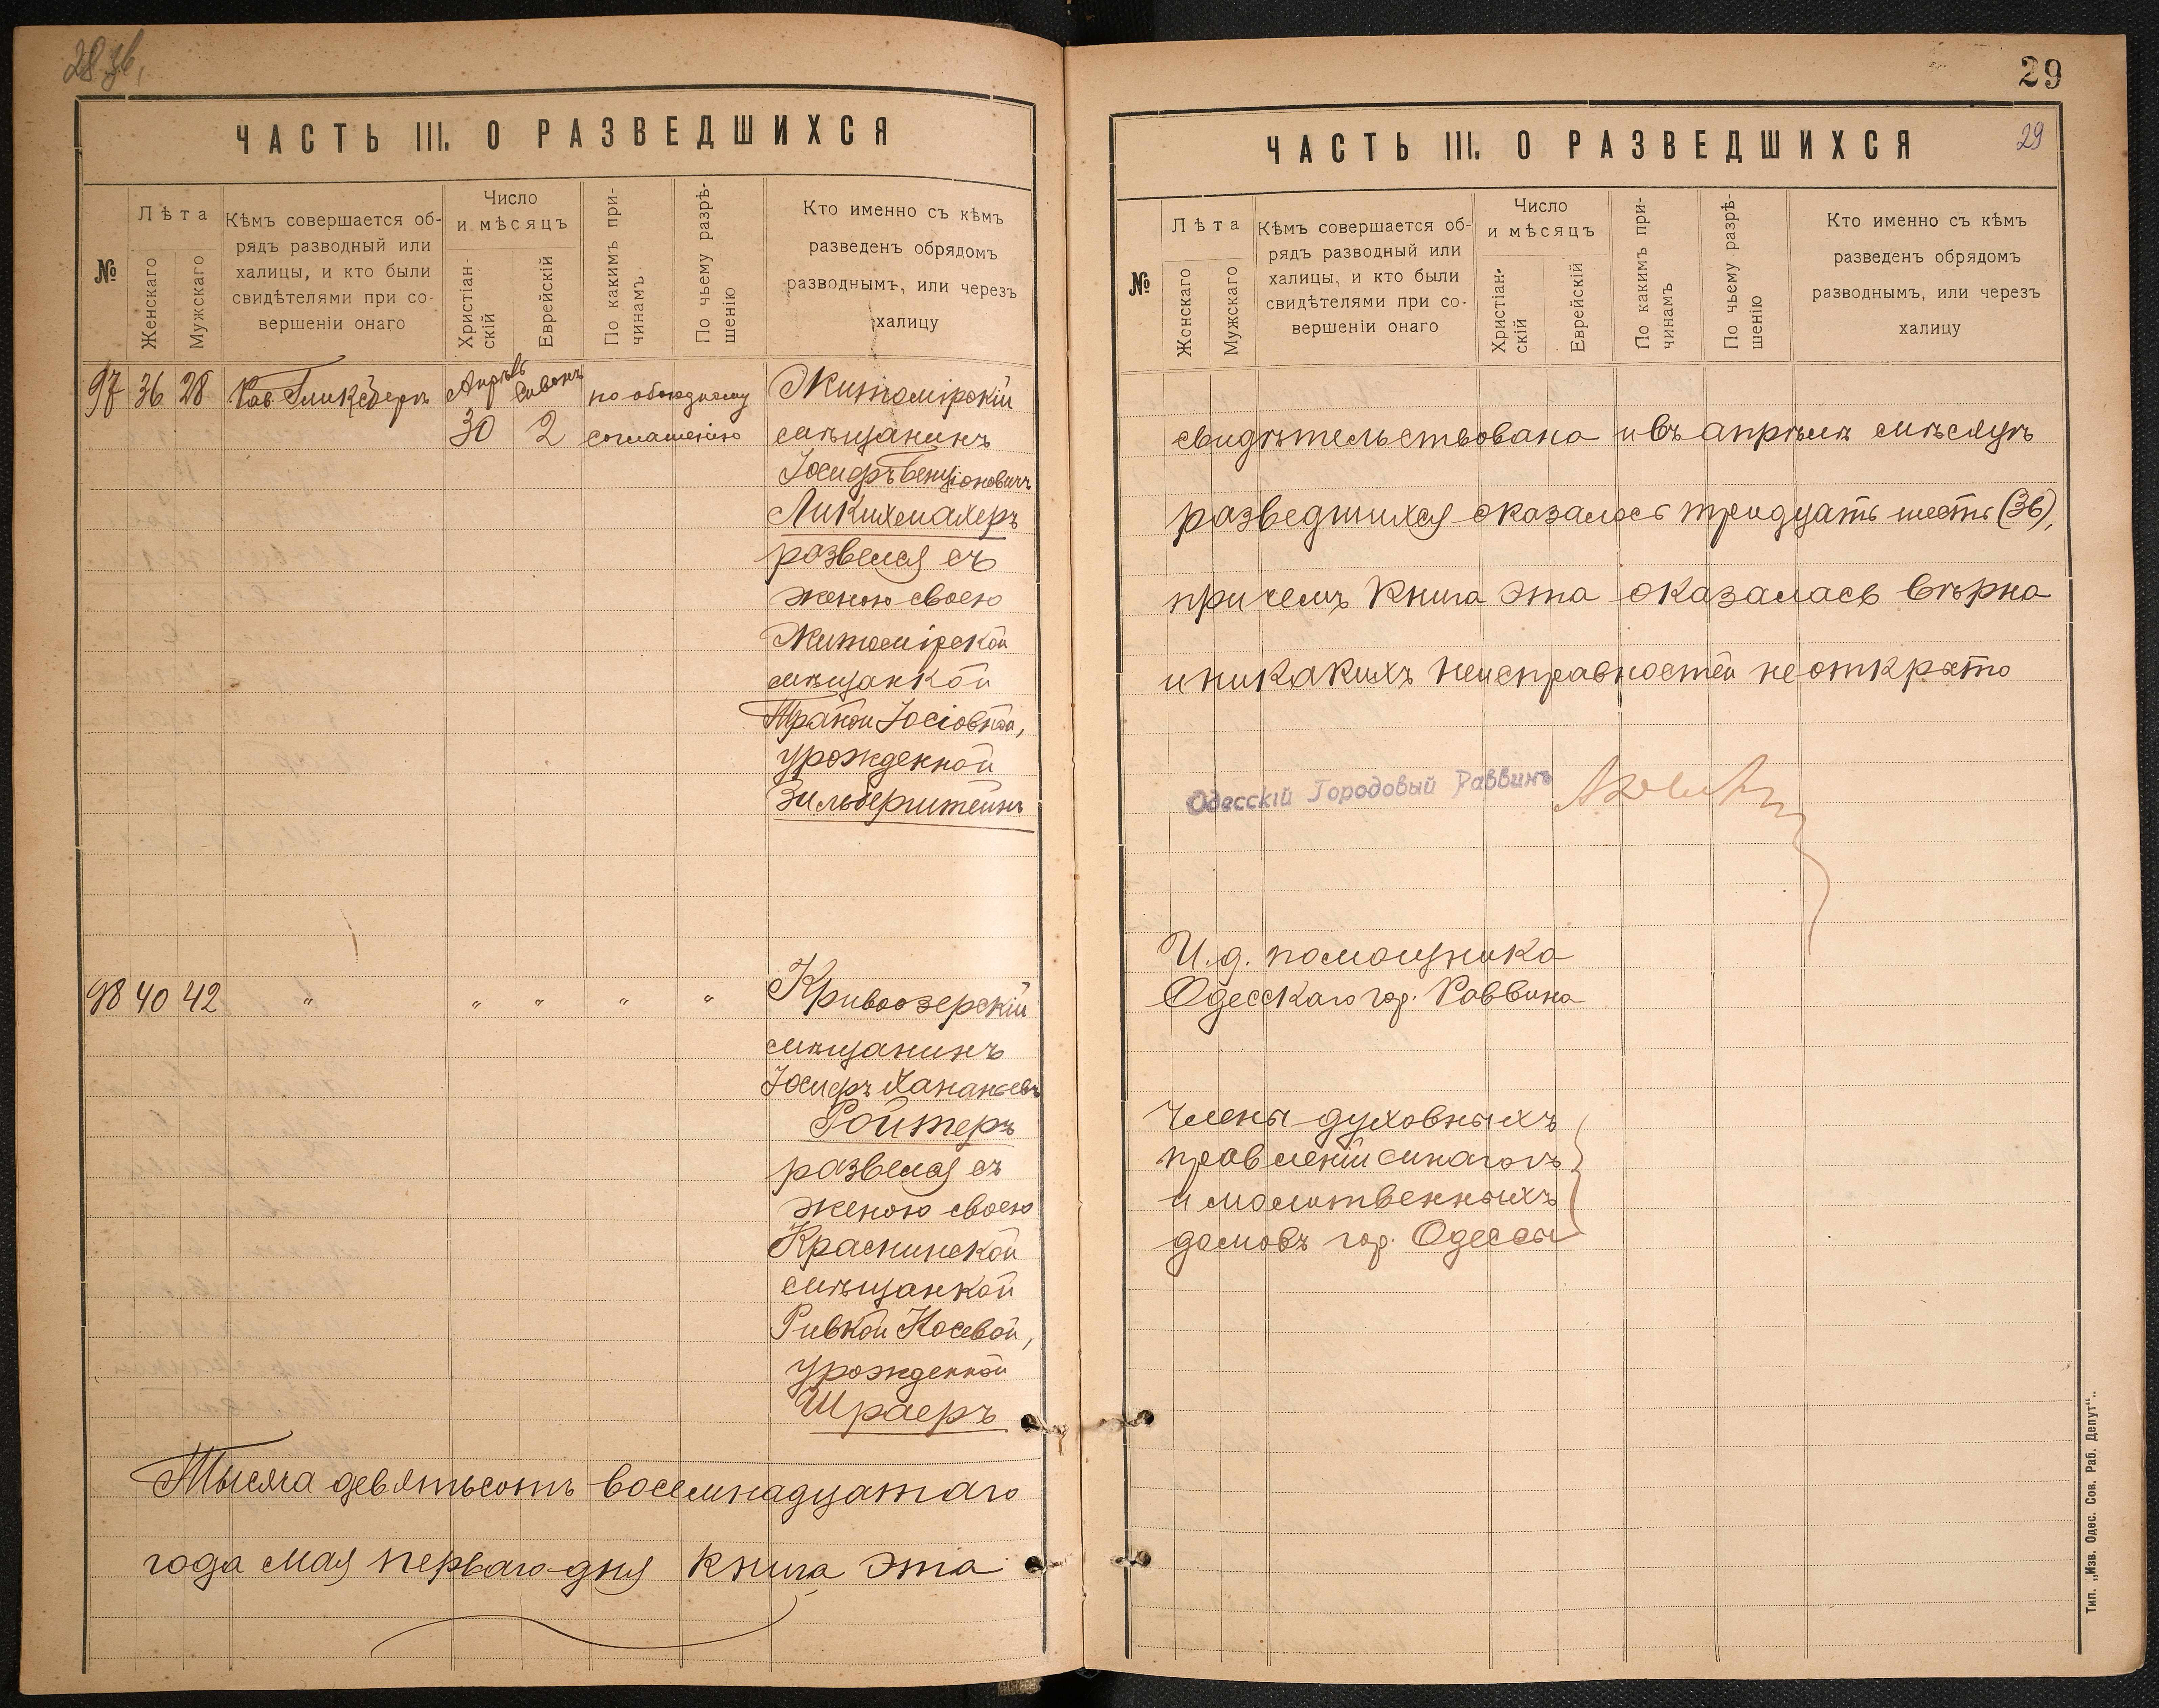 28 зв.
ЧАСТЬ III. О РАЗВЕДШИХСЯ
№
Лѣта
Женскаго
Мужскаго
Кѣмъ совершается об-
рядъ разводный или
халицы, и кто были
свидѣтелями при со-
вершеніи онаго
Число
и мѣсяцъ
Христіан-
скій
Еврейскій
По какимъ при-
чинамъ
По чьему разрѣ-
шенію
Кто именно съ кѣмъ
разведенъ обрядомъ
разводнымъ, или черезъ
халицу
97 36 28 Рав. Гликсбергъ Апрѣль Сивонъ по обоюдному Житомірскій
30 2 соглашенію мѣщанинъ
Іосифъ Бенціоновичъ
Ликихмахеръ
развелся съ
женою своею
Житомірской
мѣщанкой
Іосіовной,
урожденной
Зильберштейнъ
98 40 42 " " " " " Кривоозерскій
мѣщанинъ
Іосифъ Хананьевъ
Ройтеръ
развелся съ
женою своею
Краснинской
мѣщанкой
Ривкой Носевой,
урожденной
Шраеръ
Тысяча девятьсотъ восемнадцатаго
года мая перваго дня книга эта
29
ЧАСТЬ III. О РАЗВЕДШИХСЯ
29
№
Лѣта
Женскаго
Мужскаго
Кѣмъ совершается об-
рядъ разводный или
халицы, и кто были
свидѣтелями при со-
вершеніи онаго
Число
и мѣсяцъ
Христіан-
скій
Еврейскій
По какимъ при-
чинамъ
По чьему разрѣ-
шенію
Кто именно съ кѣмъ
разведенъ обрядомъ
разводнымъ, или черезъ
халицу
свидѣтельствована и въ апрѣлѣ мѣсяцѣ
разведшихся оказалось тридцать шесть (36),
причемъ книга эта оказалась вѣрна
и никакихъ неисправностей не открыто
Одесскій Городовый Раввинъ
И.д. помощника
Одесскаго гор. Раввина
Члены духовныхъ
правленій синагогъ
и молитвенныхъ
домовъ гор. Одессы
Тип. „Изв. Одес. Сов. Раб. Депут“.